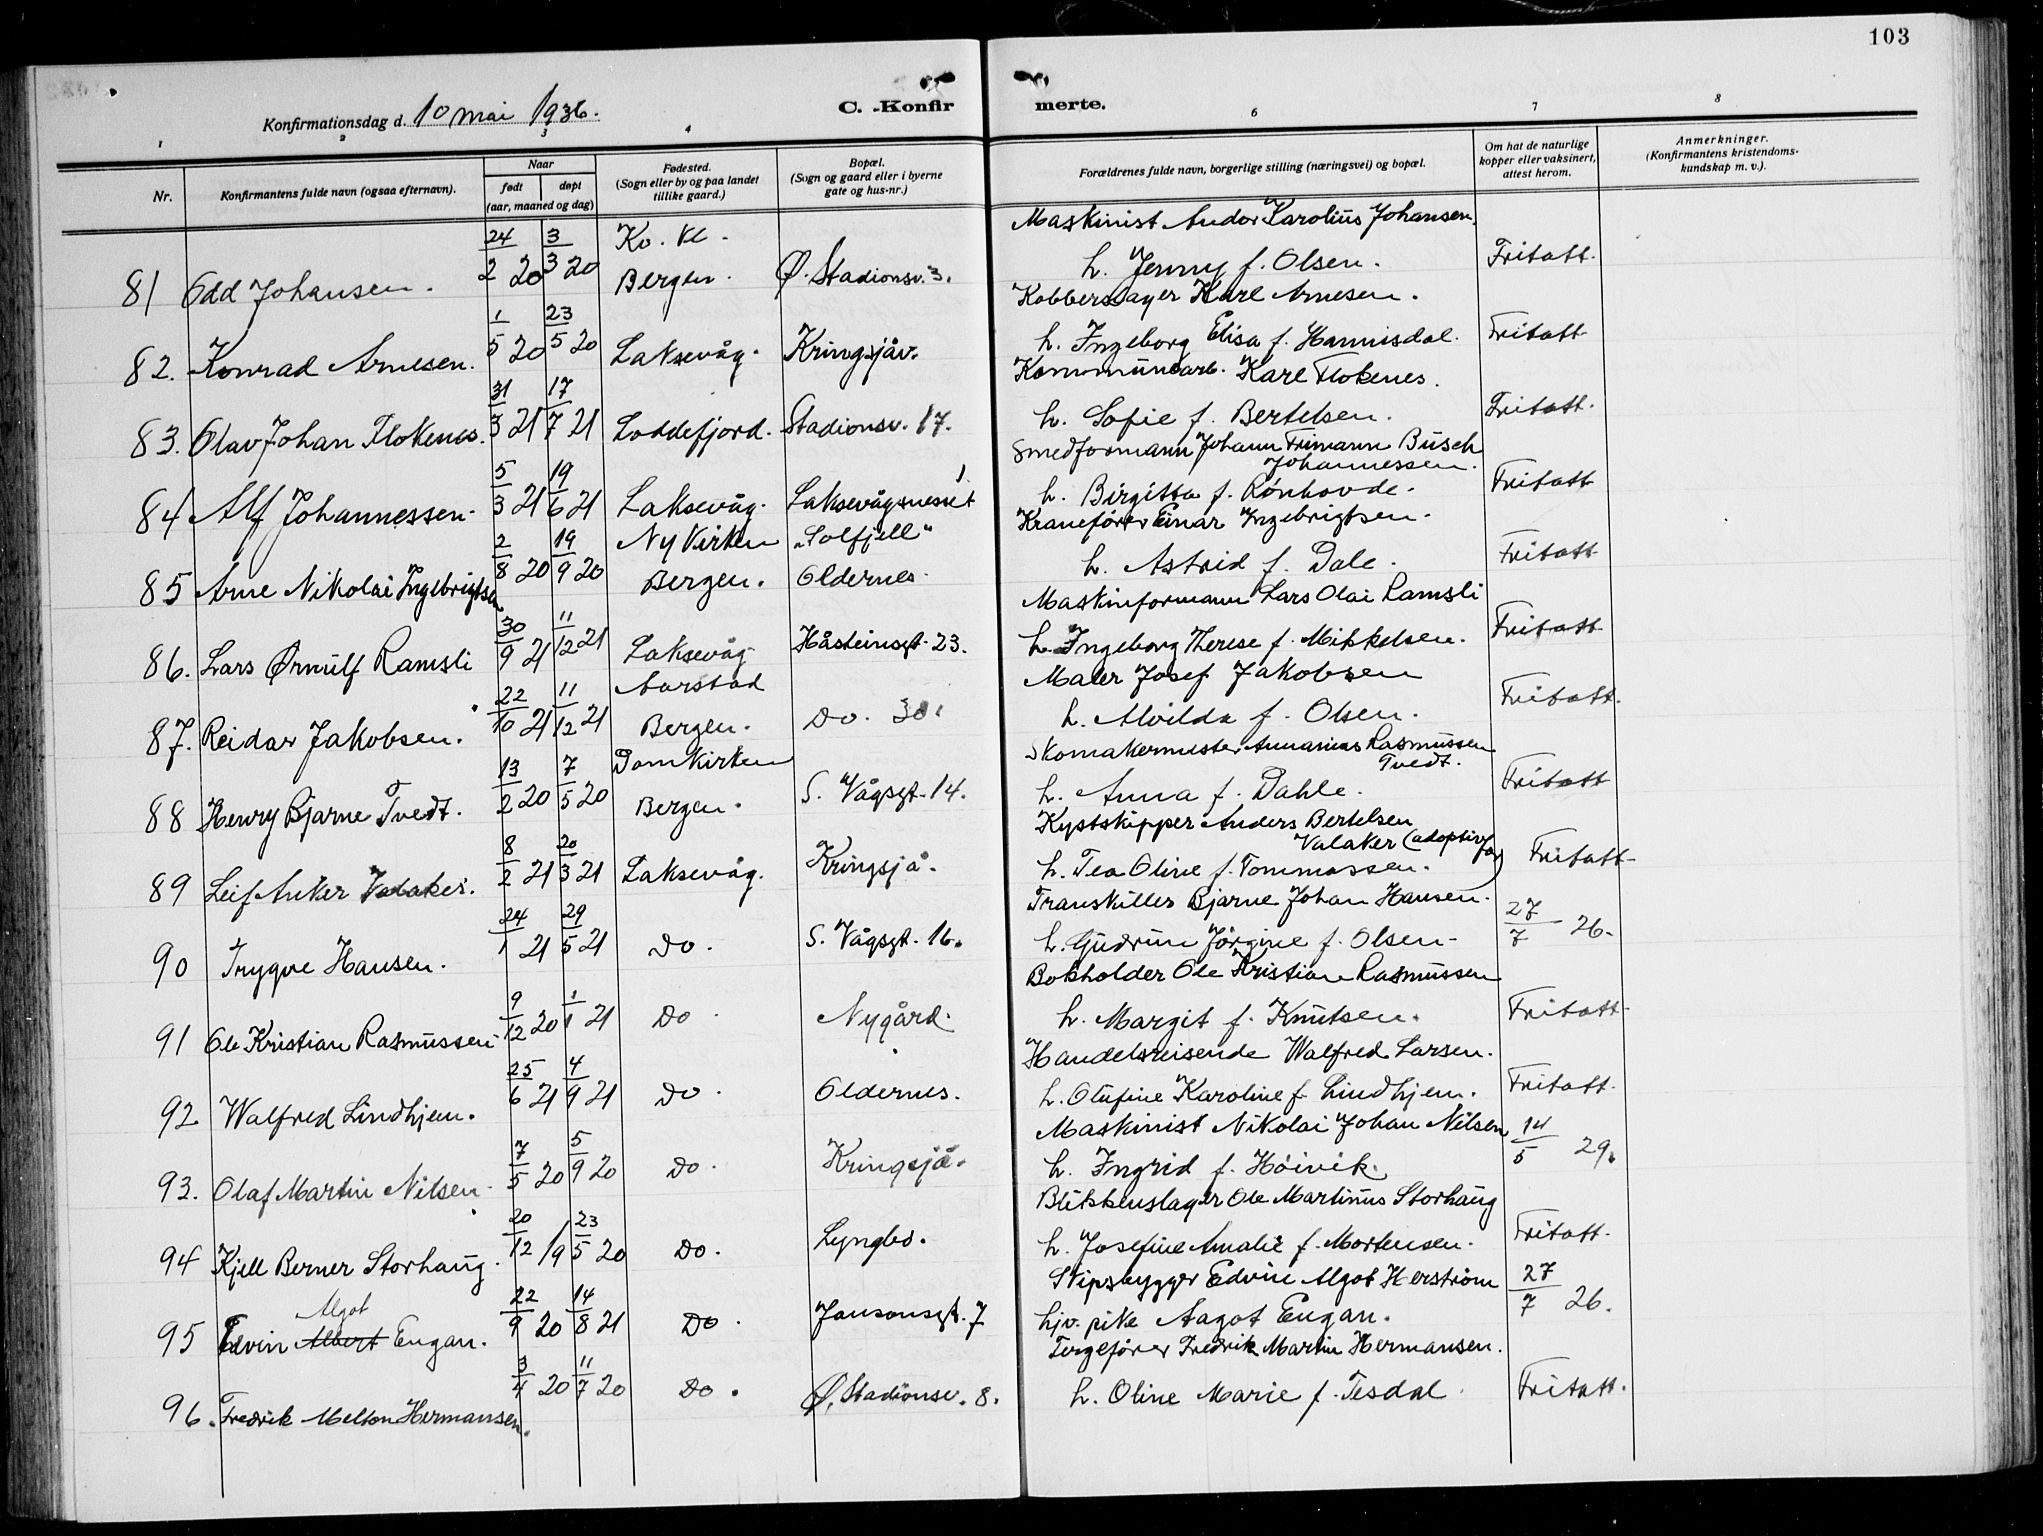 103
Konfirmationsdag d. 10 mai 1936.
C. - Konfir
merte.
1 2 3 4 6 7 8
Nr.
Konfirmantens fulde navn (ogsaa efternavn).
Naar
født døpt
(aar, maaned og dag)
Fødested.
(Sogn eller by og paa landet
tillike gaard.)
Bopæl.
(Sogn og gaard eller i byerne
gate og hus-nr.)
Forældrenes fulde navn, borgerlige stilling (næringsvei) og bopæl.
Om hat de naturlige
kopper eller vaksinert,
attest herom.
Anmerkninger.
(Konfirmantens kristendoms-
kundskap m. v.).
81 Odd Johansen. 24/2 20 3/3 20 Ko. Kl. Bergen. Ø. Stadionsv. 3.
Maskinist Andor Karolius Johansen.
h. Jenny f. Olsen. Fritatt.
82. Konrad Arnesen. 1/5 20 23/5 20 Laksevåg. Kringsjåv.
Kobberslager Karl Arnesen.
h. Ingeborg Elisa f. Hannisdal. Fritatt
83. Olav Johan Flokenes. 31/3 21 17/7 21 Loddefjord. Stadionsv. 17.
Kommunearb. Karl Flokenes.
h. Sofie f. Bertelsen. Fritatt.
84 Alf Johannessen. 5/3 21 19/6 21 Laksevåg. Laksevågsnesset 1
Smedformann Johann Frimann Busch
Johannessen.
h. Birgitta f. Rønhovde. Fritatt
85 Arne Nikolai Ingebrigtsen 2/8 20 19/9 20 Nykirken Bergen. "Solfjell" Oldernes.
Kranefører Einar Ingebrigtsen.
h. Astrid f. Dale. Fritatt
86. Lars Ørnulf Ramsli 30/9 21 11/12 21 Laksevåg Håsteinsgt. 23.
Maskinformann Lars Olai Ramsli
h. Ingeborg Therese f. Mikkelsen. Fritatt
87. Reidar Jakobsen. 22/10 21 11/12 21 Aarstad Bergen. Do. 30.
Maler Josef Jakobsen
h. Alvilda f. Olsen. Fritatt.
88 Henry Bjarne Tvedt. 13/2 20 7/5 20 Domkirken Bergen. S. Vågsgt. 14.
Skomakermester Annanias Rasmussen
Tvedt.
h. Anna f. Dahle. Fritatt
89 Leif Anker Valaker. 8/2 21 20/3 21 Laksevåg. Kringsjå.
Kystskipper Anders Bertelsen
Valaker (adoptivfar)
h. Tea Oline f. Tommassen. Fritatt
90 Trygve Hansen. 24/1 21 29/5 21 Do. S. Vågsgt. 16.
Transkiller Bjarne Johan Hansen.
h. Gudrun Jørgine f. Olsen. 27/7 26.
91 Ole Kristian Rasmussen 9/12 20 1/1 21 Do. Nygård.
Bokholder Ole Kristian Rasmussen
h. Margit f. Knutsen. Fritatt
92 Walfred Lindhjem. 25/6 21 4/9 21 Do. Oldernes.
Handelsreisende Walfred Larsen.
h. Olufine Karoline f. Lindhjem. Fritatt.
93. Olaf Martin Nilsen 7/5 20 5/9 20 Do. Kringsjå.
Maskinist Nikolai Johan Nilsen
h. Ingrid f. Høivik. 14/5 29.
94 Kjell Berner Storhaug. 20/12 19 23/5 20 Do. Lyngbo.
Blikkenslager Ole Martinus Storhaug
h. Josefine Amalie f. Mortensen. Fritatt.
95 Edvin Albert Algot Engan. 22/9 20 14/8 21 Do. Jansonsgt. 7
Skipsbygger Edvin Algot Herström
hjv. pike Aagot Engan. 27/7 26.
96. Fredrik Melton Hermansen. 3/4 20 11/7 20 Do. Ø. Stadionsv. 8.
Fergefører Fredrik Martin Hermansen.
h. Oline Marie f. Tesdal. Fritatt.